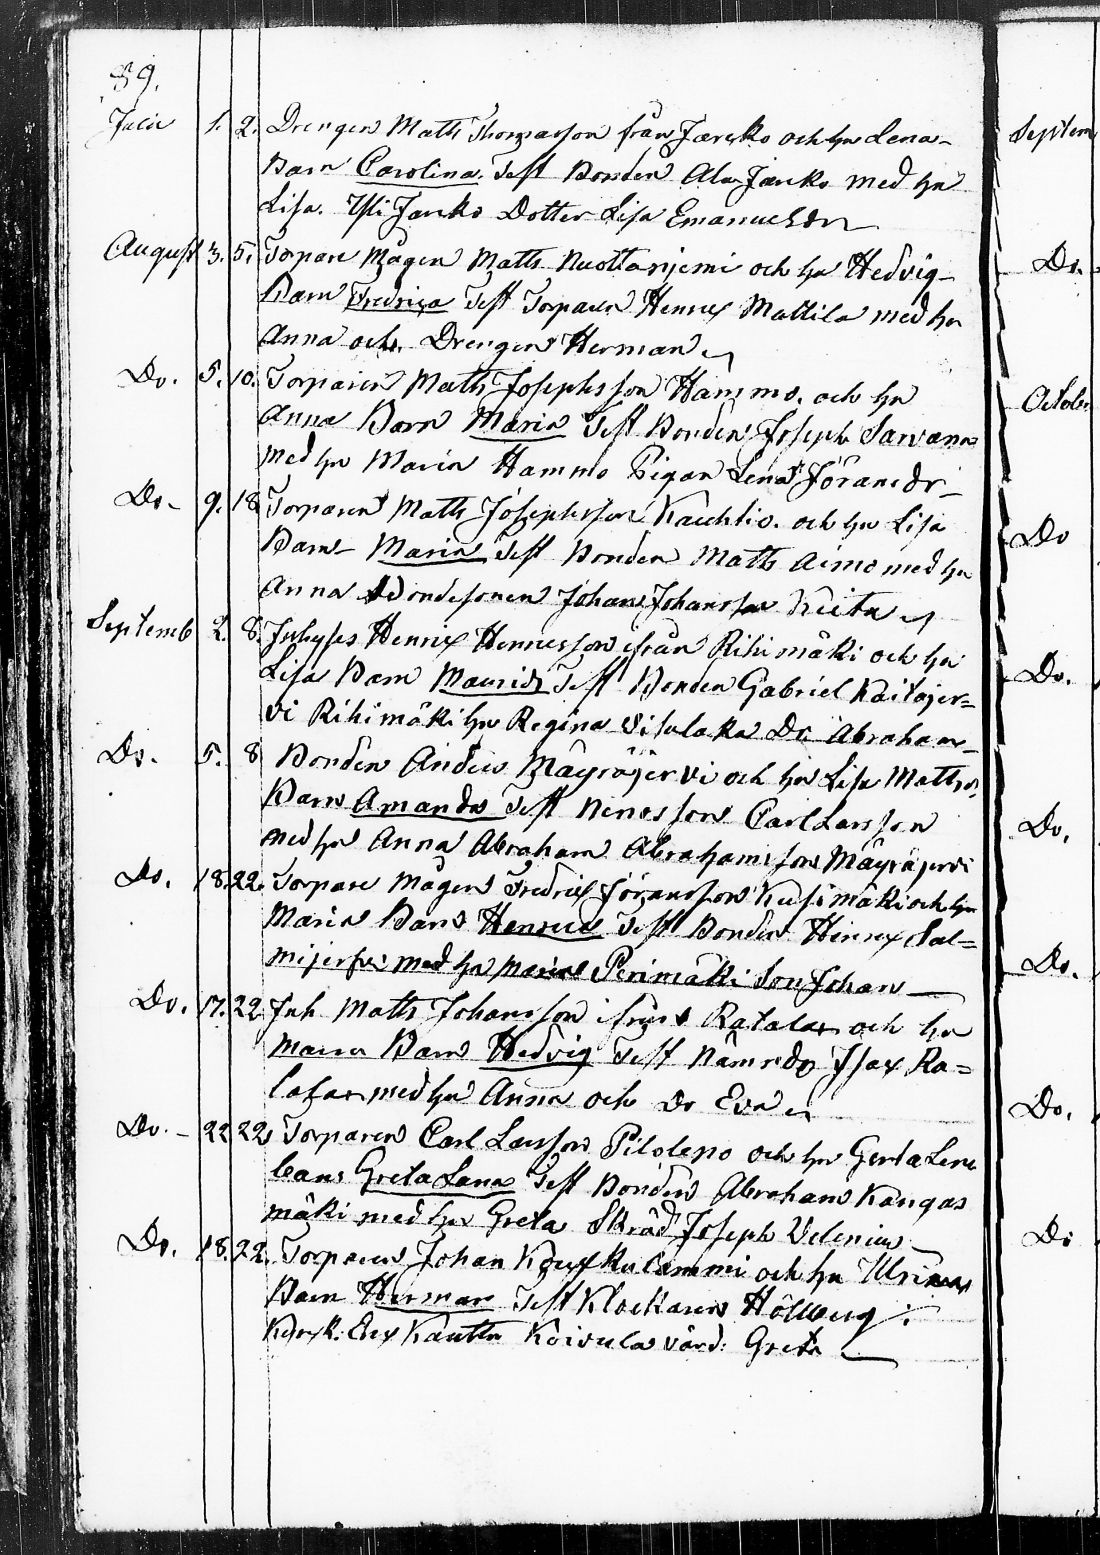 89.
Julii 1. 2. Drengen Matts Thomasson från Jareko och hu Lena
Barn Carolina. Test Bonden Ala Jareko med hu
Lisa. Yli Jareko Dotter Lisa Emanuelsdr
August 3. 5. Torpare Mågen Matts Nuottaniemi och hu Hedvig
Barn Fredrica Test Torparen Henric Mattila med hu
Anna och Drengen Herman
Do. 5. 10. Torparen Matts Josephsson Hammo. och hu
Anna Barn Maria Test Bonden Joseph Sarvana
med hu Maria Hammo Pigan Lena Göransdr
Do 9. 18 Torparen Matts Josephsson och hu Lisa
Barn Maria Test Bonden Matts Aimo med hu
Anna Bondesonen Johan Johansson
Septemb 2. 8. Inhyses Henric Henricsson ifrån Rihimäki och hu
Lisa Barn Maurids Test Bonden Gabriel Kaitajer=
vi Rihimäki hu Regina Do Abraham
Do. 5. 8 Bonden Anders Mäyräjervi och hu Lisa Matts
Barn Amanda Test Carl Larsson
med hu Anna Abraham Abrahamsson Mäyräjervi
Do. 18. 22. Torpare Mågen Fredric Göransson Kusimäki och hu
Maria Barn Henric Test Bonden Henric Sal=
mijerfvi med hu Maria Perimäki Son Johan
Do. 17. 22 Inh Matts Johansson ifrån Ratala och hu
Maria Barn Hedvig Test Nämndm Isac Ra=
tala med hu Anna och Do Eva
Do. 22 22 Torparen Carl Larsson Pilolepo och hu Greta Lena
barn Greta Lena Test Bonden Abraham Kangas
mäki med hu Greta Skräd Joseph Velenius
Do. 18. 22. Torparen Johan och hu Ulrica
Barn Herman Test Klockaren Hollberg
Kyrk: Eric Kautta Koivula värd: Greta
Septem
Do.
Octobr
Do
Do.
Do.
Do.
Do.
Do